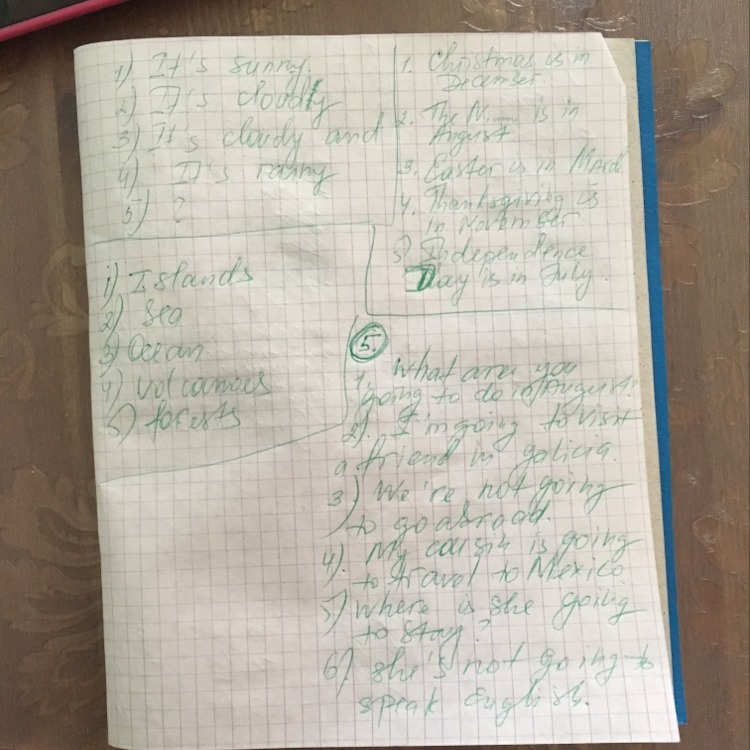 1) It's sunny.
2) It's cloudy
3) It's cloudy and
4) It's rainy
5) ?
1. Christmas is in
December.
2. The N...... is in
August
3. Easter is in March
4. Thanksgiving is
in November
5) Independence
Day is in July.
1) Islands
2) Sea
3) Ocean
4) Volcanoes
5) forests
5.
1. What are you
going to do in August?
2). I'm going to visit
a friend in galicia.
3) We're not going
to go abroad.
4). My cousin is going
to travel to Mexico
5) Where is she going
to stay?
6) She's not going to
speak English.